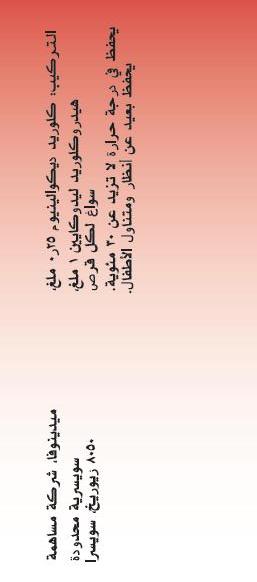 التركيب: كلوريد ديكوالينيوم ٠٫٢٥ ملغ،
هيدروكلوريد ليدوكايين ١ ملغ،
سواغ لكل قرص
يحفظ في درجة حرارة لا تزيد عن ٣٠ مئوية.
يحفظ بعيد عن أنظار ومتناول الأطفال.
ميدينوفا، شركة مساهمة
سويسرية محدودة
٨٠٥٠ زيوريخ، سويسرا